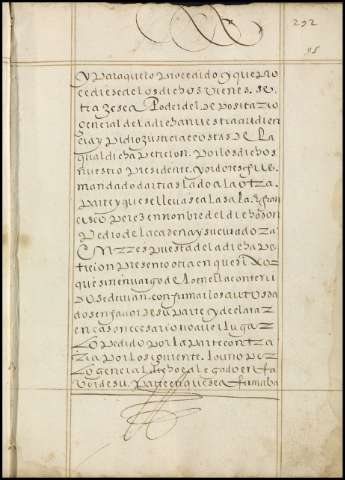 292
115
Y Para que lo Procedido y que Pro
cediese de los dichos vienes, se
traxese a Poder del depositario
General de la dicha nuestra audien
cia y Pidio Justicia e costas de la
qual dicha Peticion. Por los dichos
nuestro Presidente, y oidores fue
mandado dar traslado a la otra
Parte y que se llevase a la sala. Fran
cisco Perez en nonbre del dicho don
Pedro de la cadena y su curador.
En rrespuesta de la dicha Pe
ticion Presento otra en que dixo
que sin enbargo de lo en ella conteni
do se devian. confirmar los autos da
dos en favor de su Parte y declarar
en caso necesario no aver lugar
lo Pedido por la Parte contra
ria por lo siguiente. lo uno Por
lo general dicho e alegado en fa
vor de su. Parte en que se afirmaba